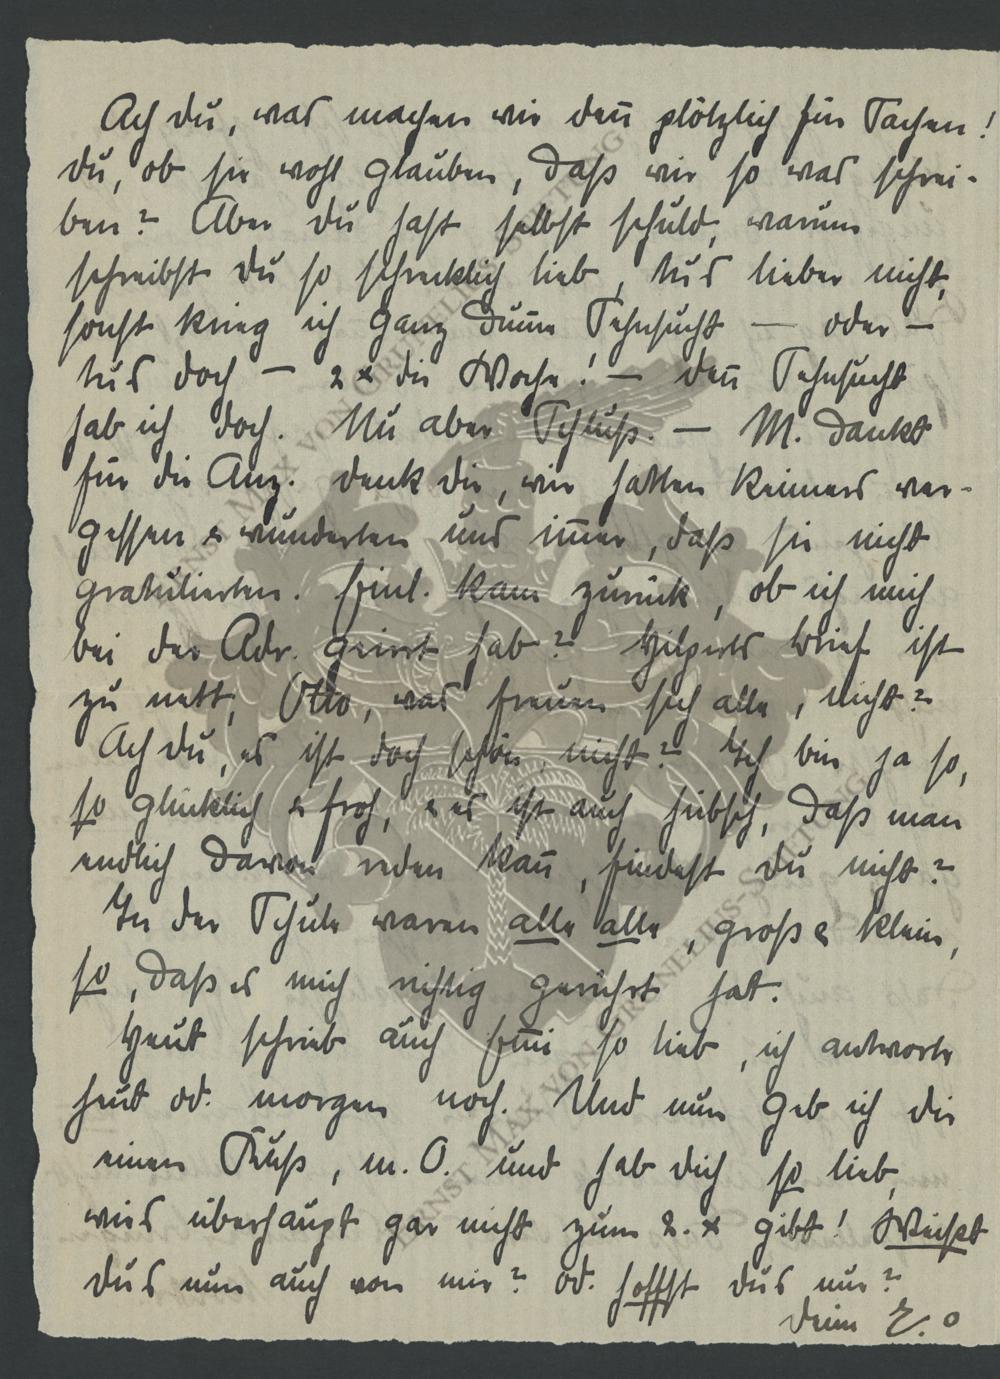 Ach du, was machen wir deñ plötzlich für Sachen!
du, ob sie wohl glauben, daß wir so was schrei-
ben? Aber du hast selbst schuld, warum
schreibst du so schrecklich lieb, tus lieber nicht,
sonst krieg ich ganz dum̄e Sehnsucht — oder —
tus doch — 2 x die Woche! — deñ Sehnsucht
hab ich doch. Nu aber Schluß. — M. dankt
für die Anz. denk dir, wir hatten Reimers ver-
gessen & wunderten uns im̄er, daß sie nicht
gratulierten. Einl. kam zurück, ob ich mich
bei der Adr. geirrt hab? Hilperts Brief ist
zu nett, Otto, was freuen sich alle, nicht?
Ach du, es ist doch schön, nicht? Ich bin ja so,
so glücklich & froh, & es ist auch hübsch, daß man
endlich davon reden kañ, findest du nicht?
In der Schule waren alle alle, groß & klein,
so, daß es mich richtig gerührt hat.
Heut schrieb auch Em̄i so lieb, ich antworte
heut od. morgen noch. Und nun geb ich dir
einen Kuß, m. O. und hab dich so lieb,
wies überhaupt gar nicht zum 2. x gibt! Weißt
dus nun auch von mir? od. hoffst dus nur?
Deine E.
ERNST MAX VON GRUNELIUS-STIFTUNG
ERNST MAX VON GRUNELIUS-STIFTUNG